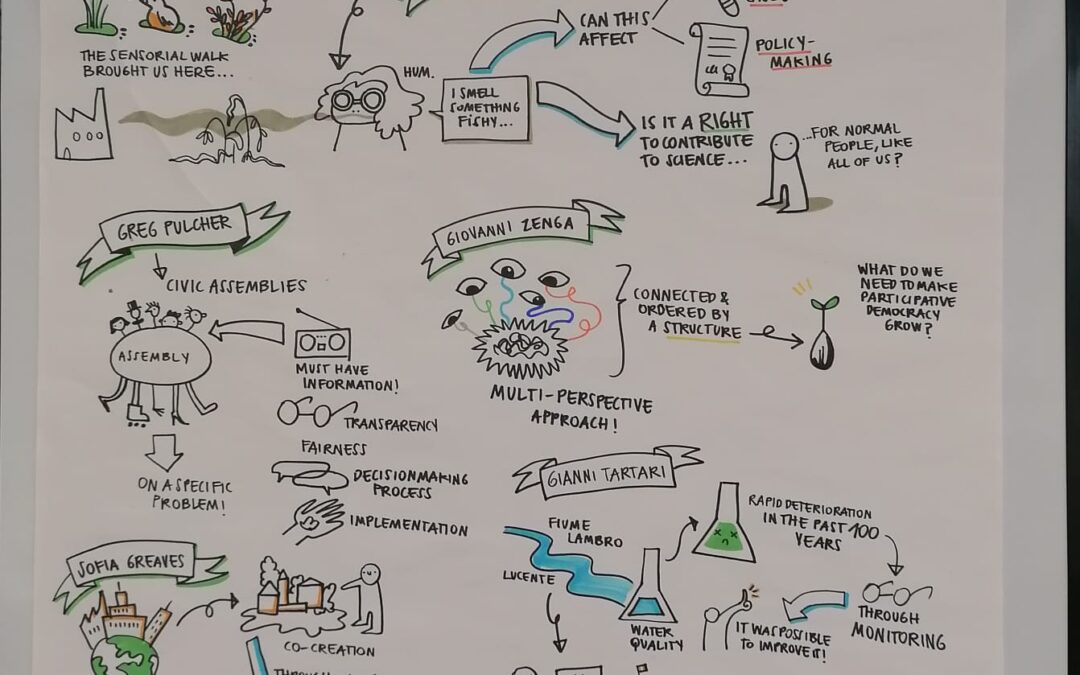 THE SENSORIAL WALK
BROUGHT US HERE...
HUM.
I SMELL
SOMETHING
FISHY...
CAN THIS
AFFECT
POLICY-
MAKING
IS IT A RIGHT
TO CONTRIBUTE
TO SCIENCE...
...FOR NORMAL
PEOPLE, LIKE
ALL OF US?
GREG PULCHER
CIVIC ASSEMBLIES
ASSEMBLY
MUST HAVE
INFORMATION!
TRANSPARENCY
FAIRNESS
DECISIONMAKING
PROCESS
IMPLEMENTATION
ON A SPECIFIC
PROBLEM!
GIOVANNI ZENGA
CONNECTED &
ORDERED BY
A STRUCTURE
MULTI-PERSPECTIVE
APPROACH!
WHAT DO WE
NEED TO MAKE
PARTICIPATIVE
DEMOCRACY
GROW?
SOFIA GREAVES
CO-CREATION
GIANNI TARTARI
FIUME
LAMBRO
LUCENTE
WATER
QUALITY
RAPID DETERIORATION
IN THE PAST 100
YEARS
THROUGH
MONITORING
IT WAS POSSIBLE
TO IMPROVE IT!